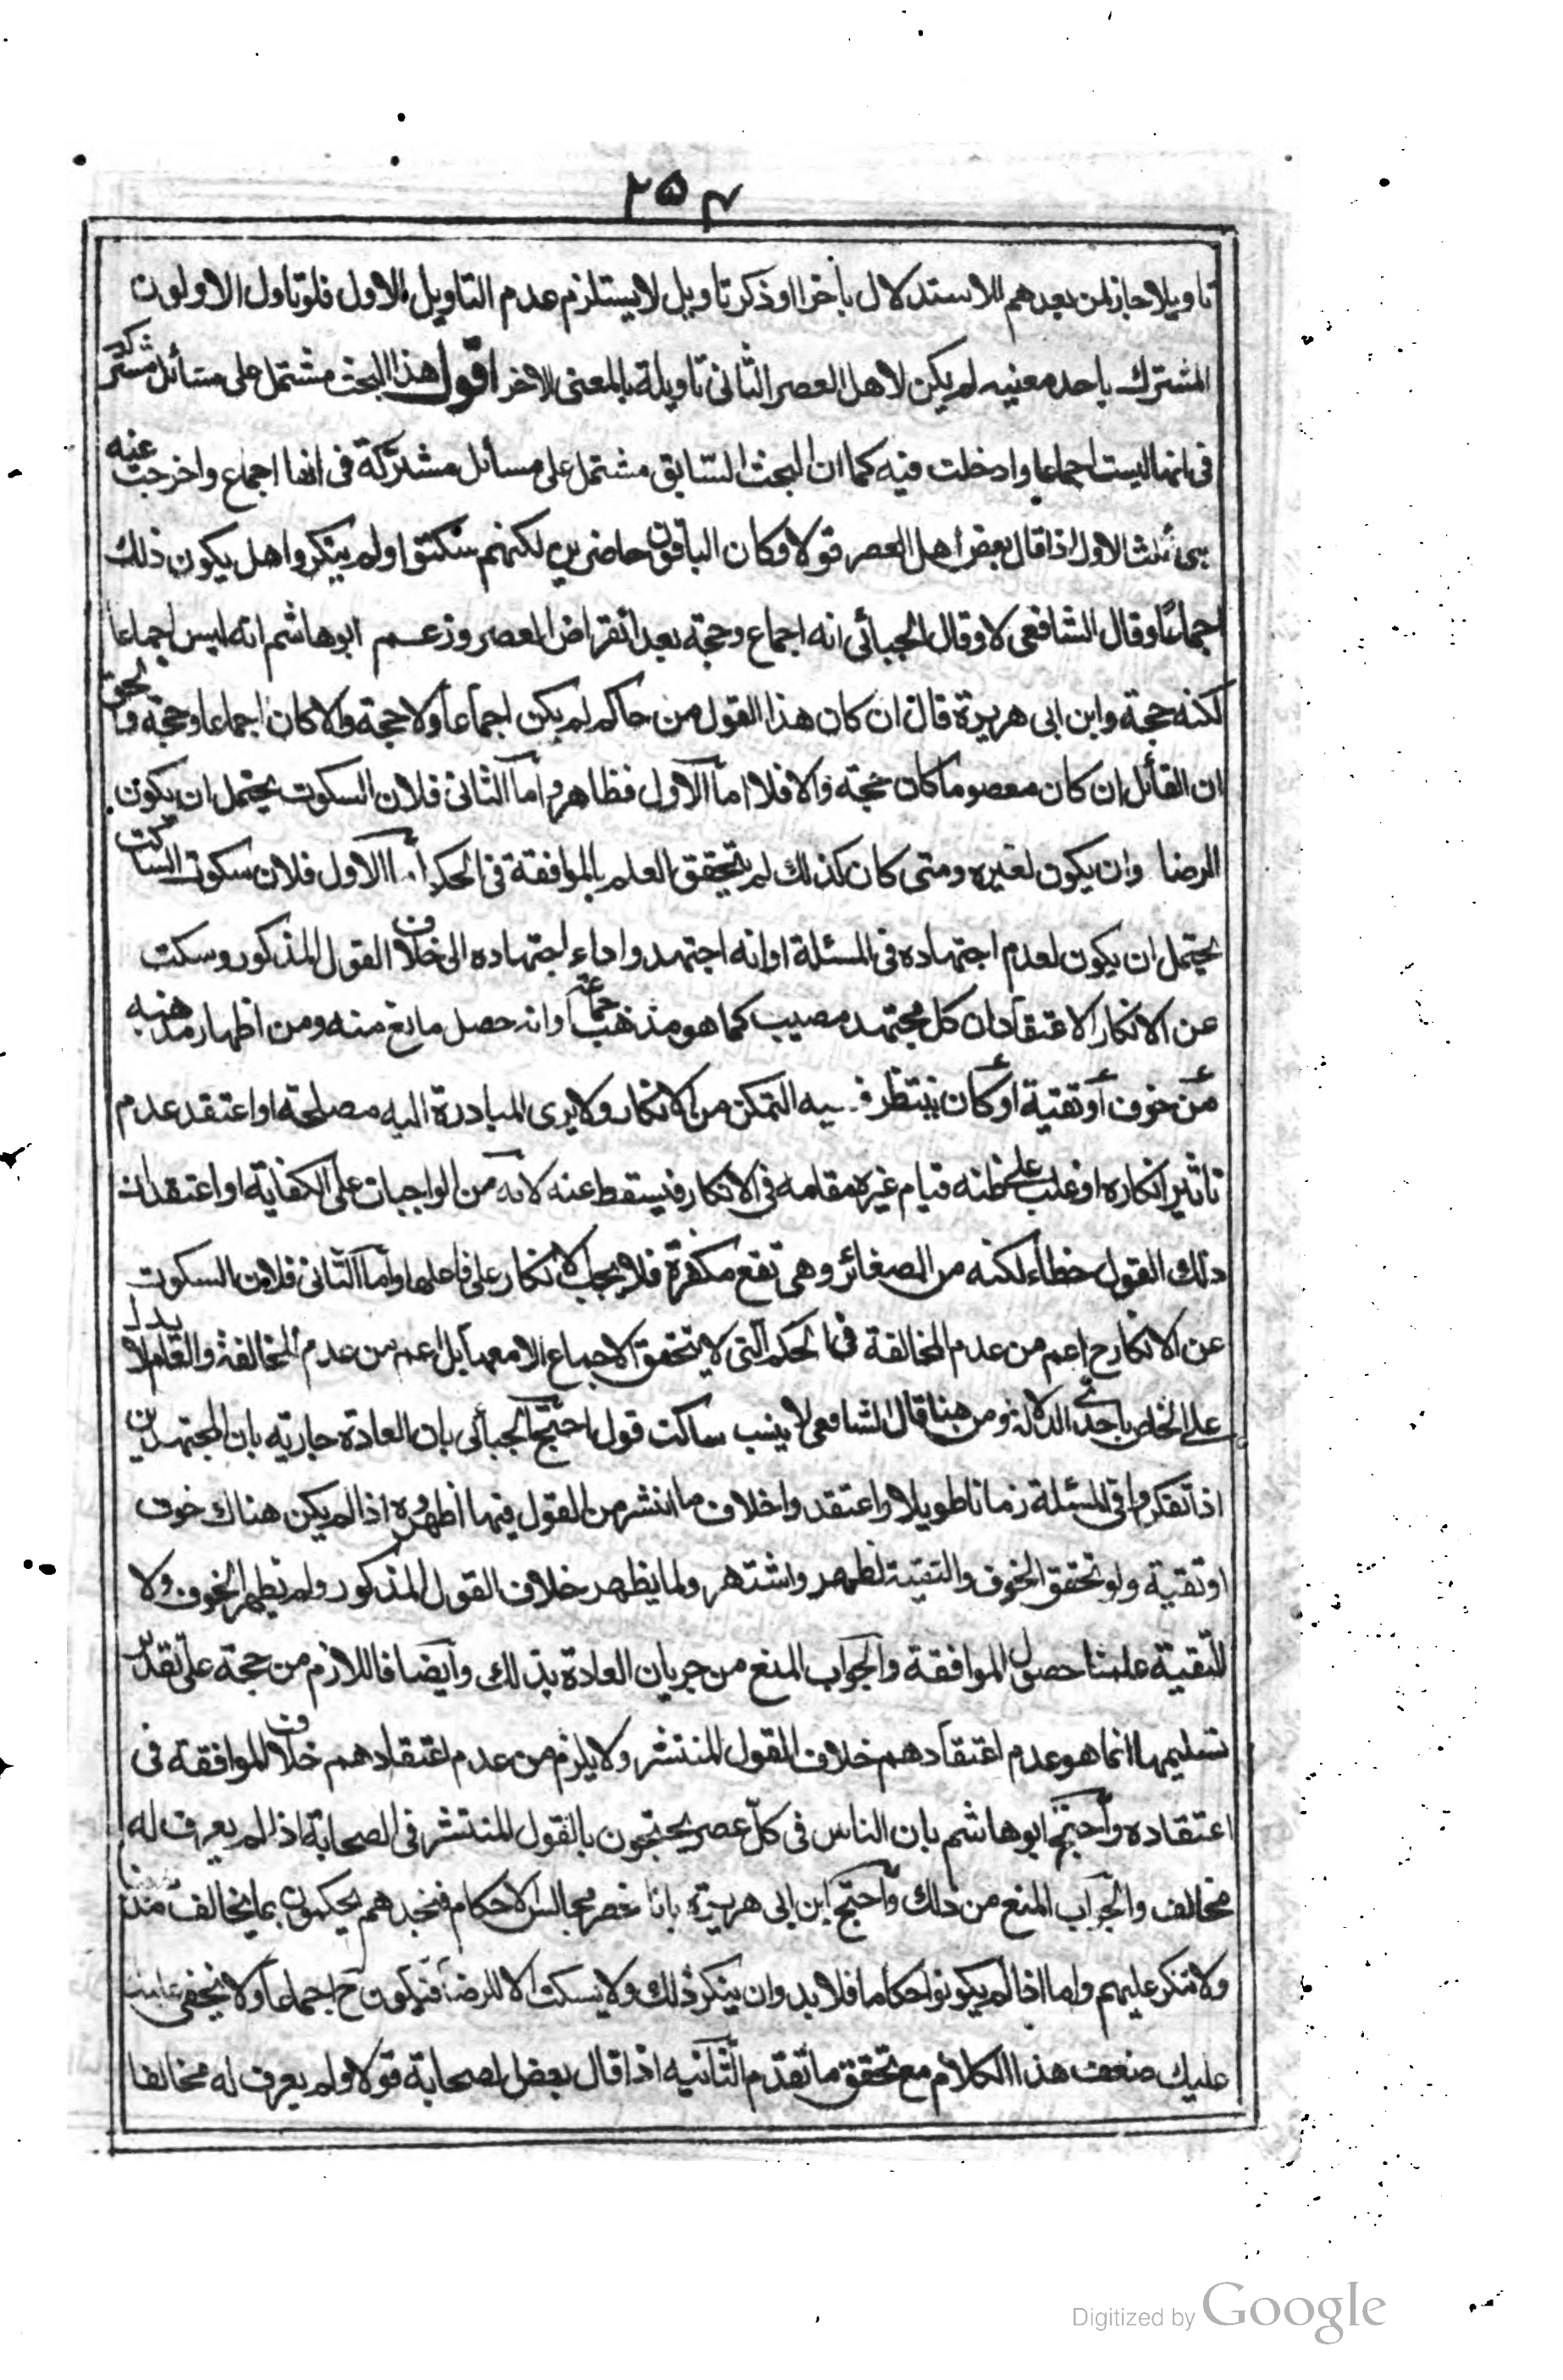 ٢٥٣
تاويلا جاز لمن بعدهم الاستدلال باخر او ذكر تاويل لا يستلزم عدم التاويل الاول فلو تاول الاولون
المشترك باحد معنييه لم يكن لاهل العصر الثانى تاويله بالمعنى الاخر اقول هذا البحث مشتمل على مسائل مشتركة
فى انها ليست اجماعا وادخلت فيه كما ان البحث السّابق مشتمل على مسائل مشتركة فى انها اجماع واخرجت عنه
الاول اذا قال بعض اهل العصر قولا وكان الباقون حاضرين لكنهم سكتوا ولم ينكروا هل يكون ذلك
اجماعًا وقال الشافعى لا وقال الجبائى انه اجماع وحجة بعد انقراض العصر وزعم ابوهاشم انه ليس اجماعا
لكنه حجة وابن ابى هريرة قال ان كان هذا القول من حاكم لم يكن اجماعا ولا حجة والا كان اجماعا وحجة والحق
ان القائل ان كان معصوما كان حجة والا فلا اما الاول فظاهر واما الثانى فلان السكوت يحتمل ان يكون
للرضا وان يكون لغيره ومتى كان كذلك لم يتحقق العلم بالموافقة فى الحكم أما الاول فلان سكوت الساكت
يحتمل ان يكون لعدم اجتهاده فى المسئلة او انه اجتهد واداء اجتهاده الى خلاف القول المذكور وسكت
عن الانكار لاعتقاد ان كل مجتهد مصيب كما هو مذهب جماعة وانه حصل مانع منه ومن اظهار مذهبه
من خوف أو تقية أو كان ينتظر فيه التمكن من الانكار ولا يرى المبادرة اليه مصلحة او اعتقد عدم
تاثير انكاره او غلب على ظنه قيام غيره مقامه فى الانكار فيسقط عنه لانه من الواجبات على الكفاية او اعتقد ان
ذلك القول خطاء لكنه من الصغائر وهى تقع مكفرة فلا يجب الانكار على فاعلها واما الثانى فلان السكوت
عن الانكار ح اعم من عدم المخالفة فى الحكم التى لا يتحقق الاجماع الا معها بل اعم من عدم المخالفة والعام لا يدل
على الخاص باحدى الدلالة ومن هنا قال الشافعى لا ينسب ساكت قول احتج الجبائى بان العادة جارية بان المجتهدين
اذا تفكروا فى المسئلة زمانا طويلا واعتقدوا خلاف ما انتشر من القول فيها اظهروه اذا لم يكن هناك خوف
او تقية ولو تحقق الخوف والتقية لظهر واشتهر ولما يظهر خلاف القول المذكور ولم يظهر الخوف ولا
للتقية علمنا حصول الموافقة والجواب المنع من جريان العادة بذلك وايضا فاللازم من حجة على تقدير
تسليمها انما هو عدم اعتقادهم خلاف القول المنتشر ولا يلزم من عدم اعتقادهم خلاف الموافقة فى
اعتقاده واحتج ابوهاشم بان الناس فى كلّ عصر يحتجون بالقول المنتشر فى الصحابة اذا لم يعرف له
مخالف والجواب المنع من ذلك واحتج ابن ابى هريرة بانا نحضر مجالس الاحكام فنجدهم يحكمون بما يخالف
ولا ننكر عليهم واما اذا لم يكونوا حكاما فلا بد وان ينكر ذلك ولا يسكت الا للرضا فيكون ح اجماعا ولا يخفى
عليك ضعف هذا الكلام مع تحقق ما تقدّم الثانيه اذا قال بعض الصحابة قولا ولم يعرف له مخالفا
Digitized by Google